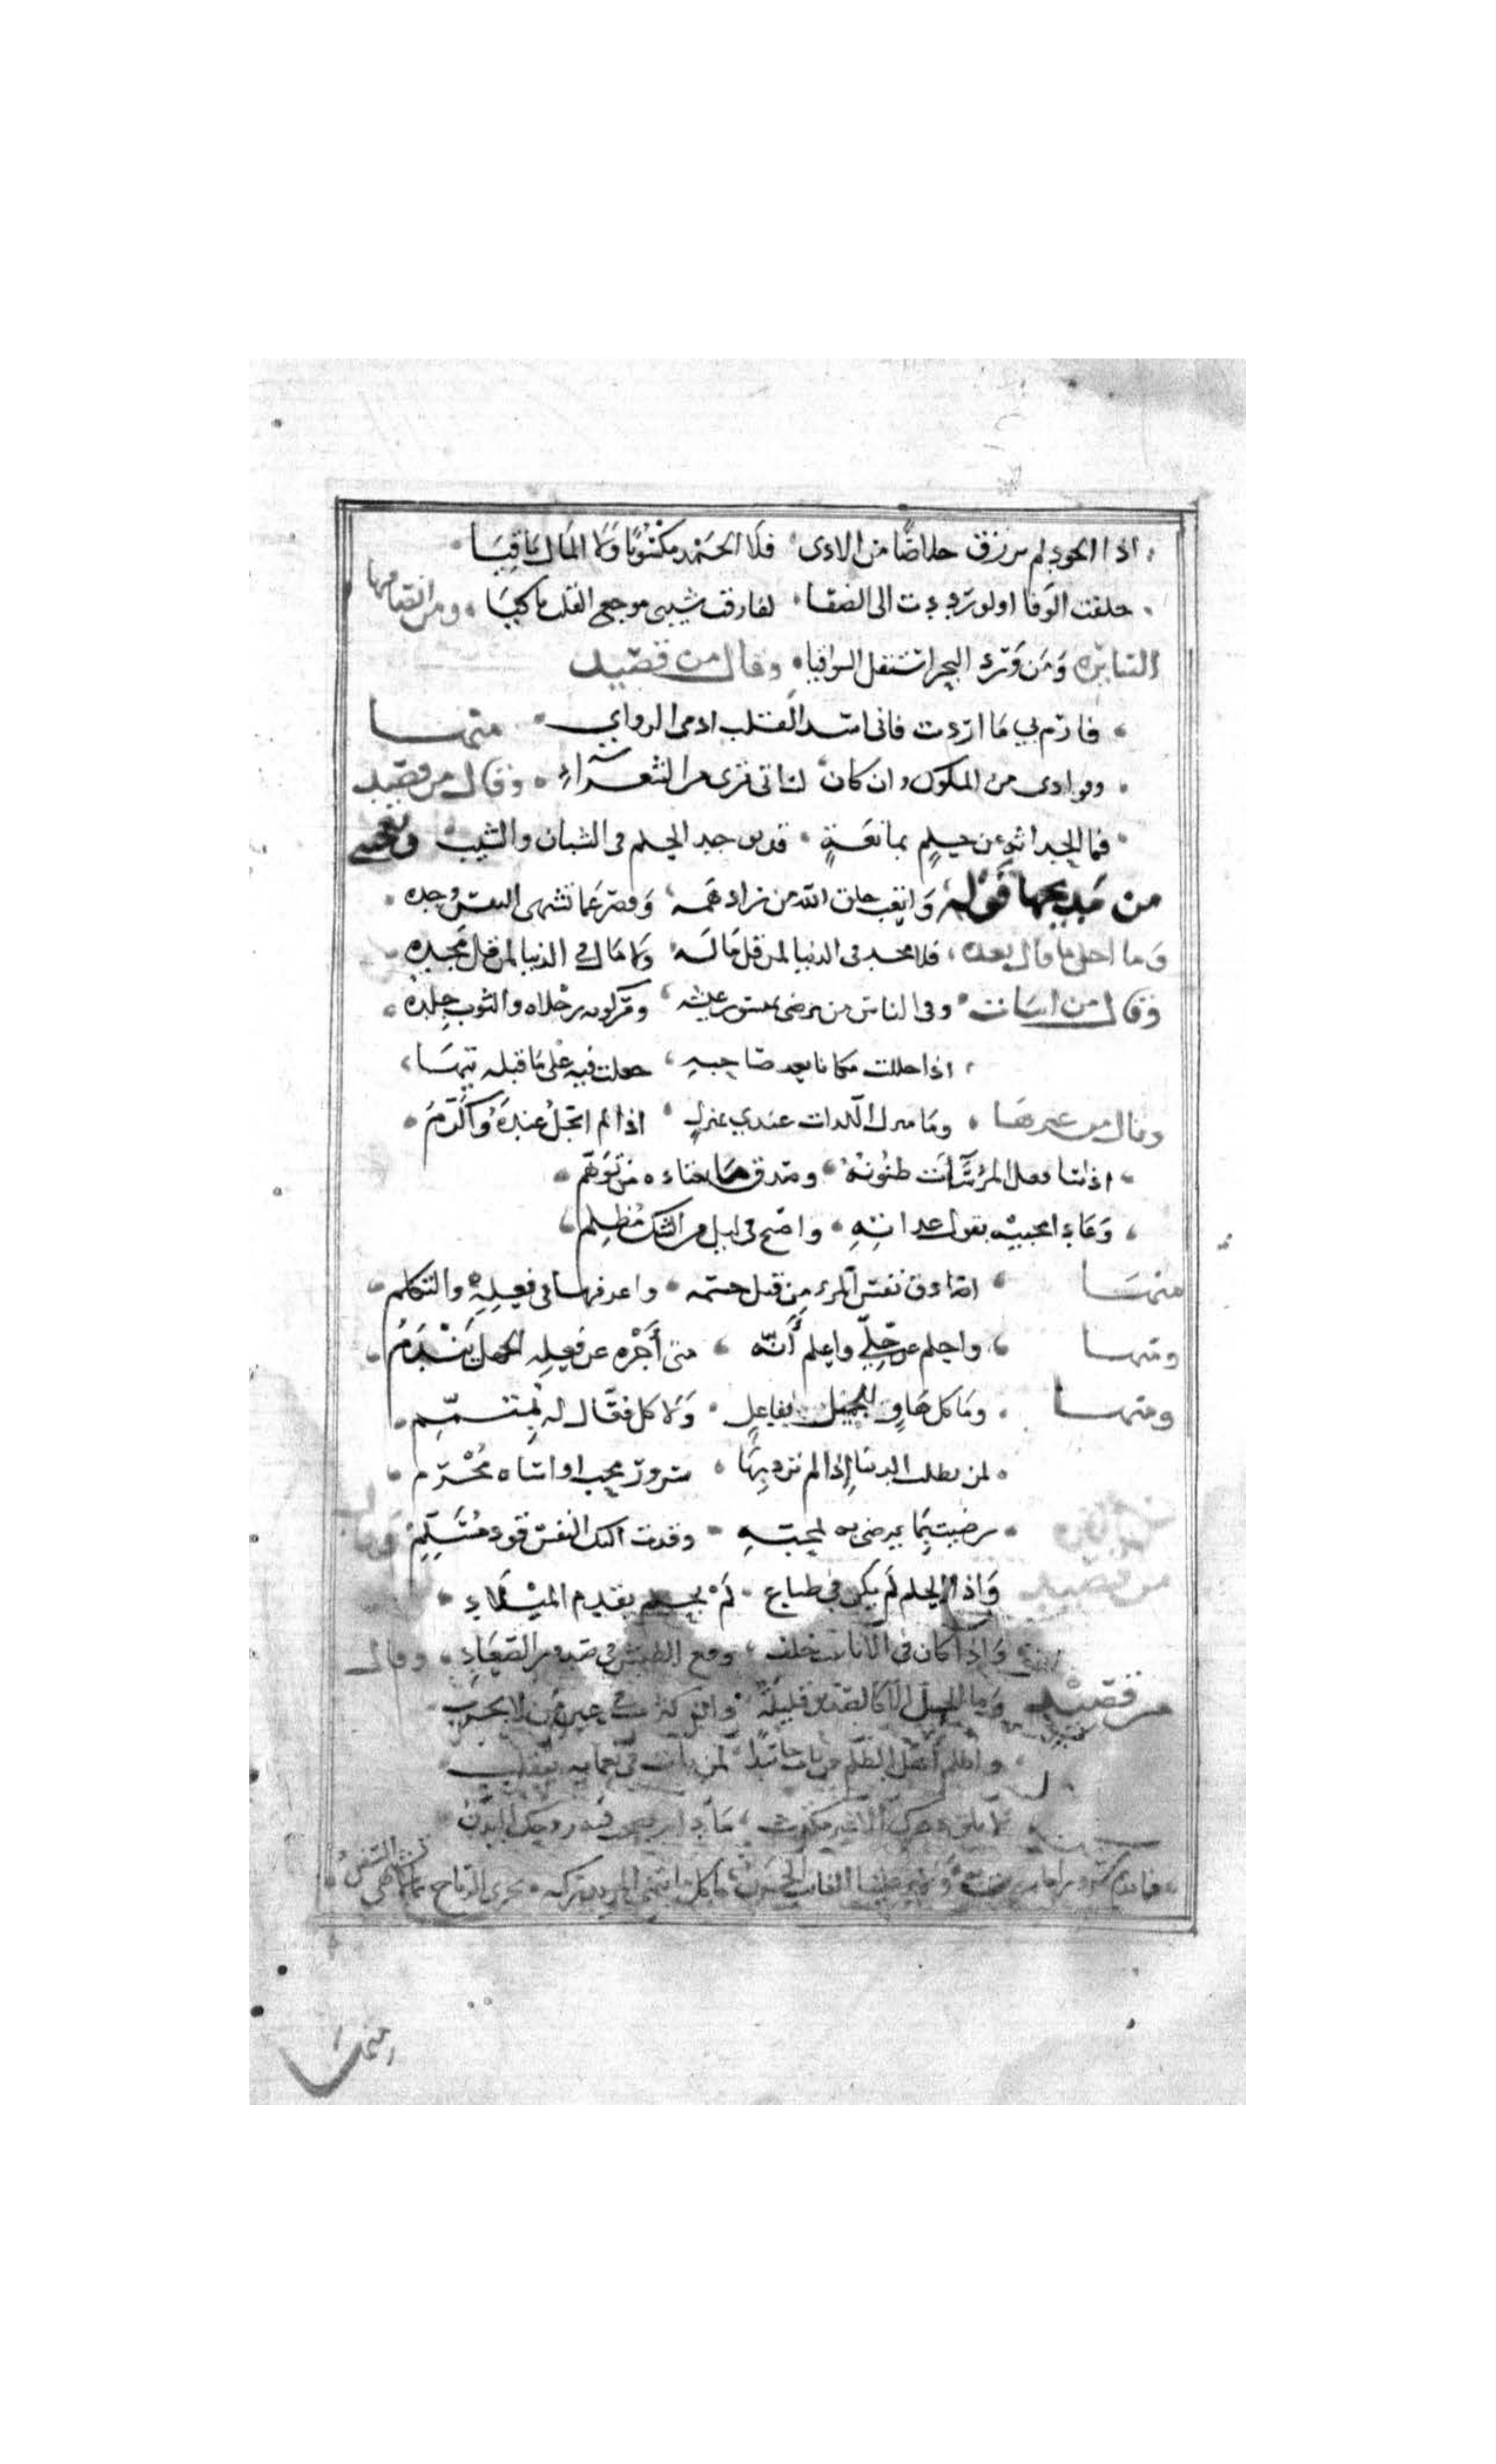 اذا الجود لم يرزق خلاصًا من الاذى فلا الحَمْد مكْسُوبًا وَلا المَال بَاقِيَا
خلقت الوفا اولو رددت الى الصَّبا لفارقت شيبى موجع القلب باكيَا ومن انصافها
السَّايره وَمَن وَرَد البحر استقل السواقيا وقال من قصيد
فارم بي مَا اردت فانى اسد القلب ادمى الرواي منهَا
وفوادى من الملوك وان كان لسَانى يُرى من الشعَرَاءِ وقال من قصيد
فما الحداثة عن حلمٍ بمَانعَةٍ قد يوجد الحلم فى الشبان والشيب ويعجبنى
من مَديحهَا قَوْله وَاتعب خلق الله من زاد هَمه وَقصّر عَمّا تشتهى النفس وُجده
وَما احلى ما قال بعده فلا مجد فى الدنيا لمن قل مَاله وَلا مَال فى الدنيا لمن قل مَجده
وَقال من ابيَات وفى الناس من يرضى بميسور عيشه ومَركوبه رجْلاه والثوب جِلدهُ
اذا حللت مكانا بعد صَاحبهِ جعلت فيهِ عَلى مَا قبله تيهَا
وقال من غيرهَا ومَا منزل اللذات عندي بمنزلٍ اذا لم ابجَّلْ عندَهُ وَأكرَّمَ
اذا سَا فعل المرْءِ سَآءَت ظنُونهُ وصَدق مَا يعتاده من تَوَهّم
وَعَادى محبيْه بقول عداتهِ واصبح فى ليل من الشك مُظلِم
منهَا اصَادق نفسَ المَرء مِن قبل جسمه واعرفها فى فِعلِهْ والتكلم
ومنها واحلم عن خِلّي واعلم أَنّه متى أَجْزه عن فِعلِه الجهل يَنْدَمُ
ومنها وَمَا كل هَاوٍ للجَميل بفاعلٍ وَلَا كل فعَّال له بمُتَمّمِ
لمن تطلب الدنيَا إِذا لم ترد بِهَا سُرورَ محب او اسَاة مُجْرم
رضيت بِمَا يرضى به لمحبّةٍ وقدت اليك النفس قود مُسَلِّمِ وَقال
من قصيد وَاذا الحلم لم يكن فى طباع لَمْ يحلم تقدم الميْلَادِ
وَاذا كان فى الانابيب خلف وقع الطيش فى صدور الصّعَادِ وقال
من قصيْد وَما الخيل الا كالصديق قليلَة وان كثرت فى عين من لا يجرّب
واظلم أهل الظلم من بات حَاسدًا لمن بات فى نعمايه يتقلب
لا تلق دهرك الا غير مكترث مَا دام يصحب فيه روحك البَدَن
فما يدوم سرور ما سررت به وَلا يرد عليك الفايت الحزن مَا كل مَا يتمنى المرء يدركه تجرى الرياح بمَا لا تشتهى السّفنُ
منهَا